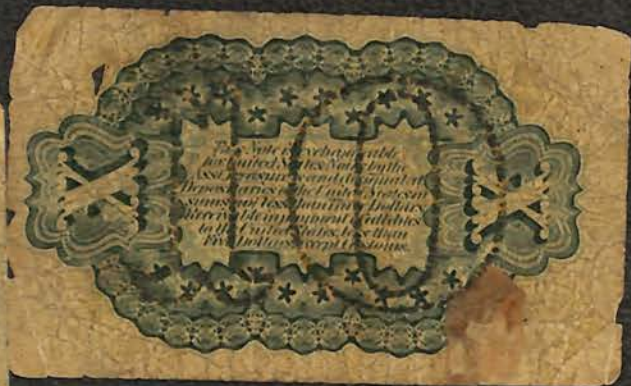 This Note is exchangeable
for United States Notes by the
Treasurers
Depositaries of the United States in
sums not less than Three Dollars
Receivable in payment of all dues
to the United States, less than
Five Dollars except Customs.
X
X
10